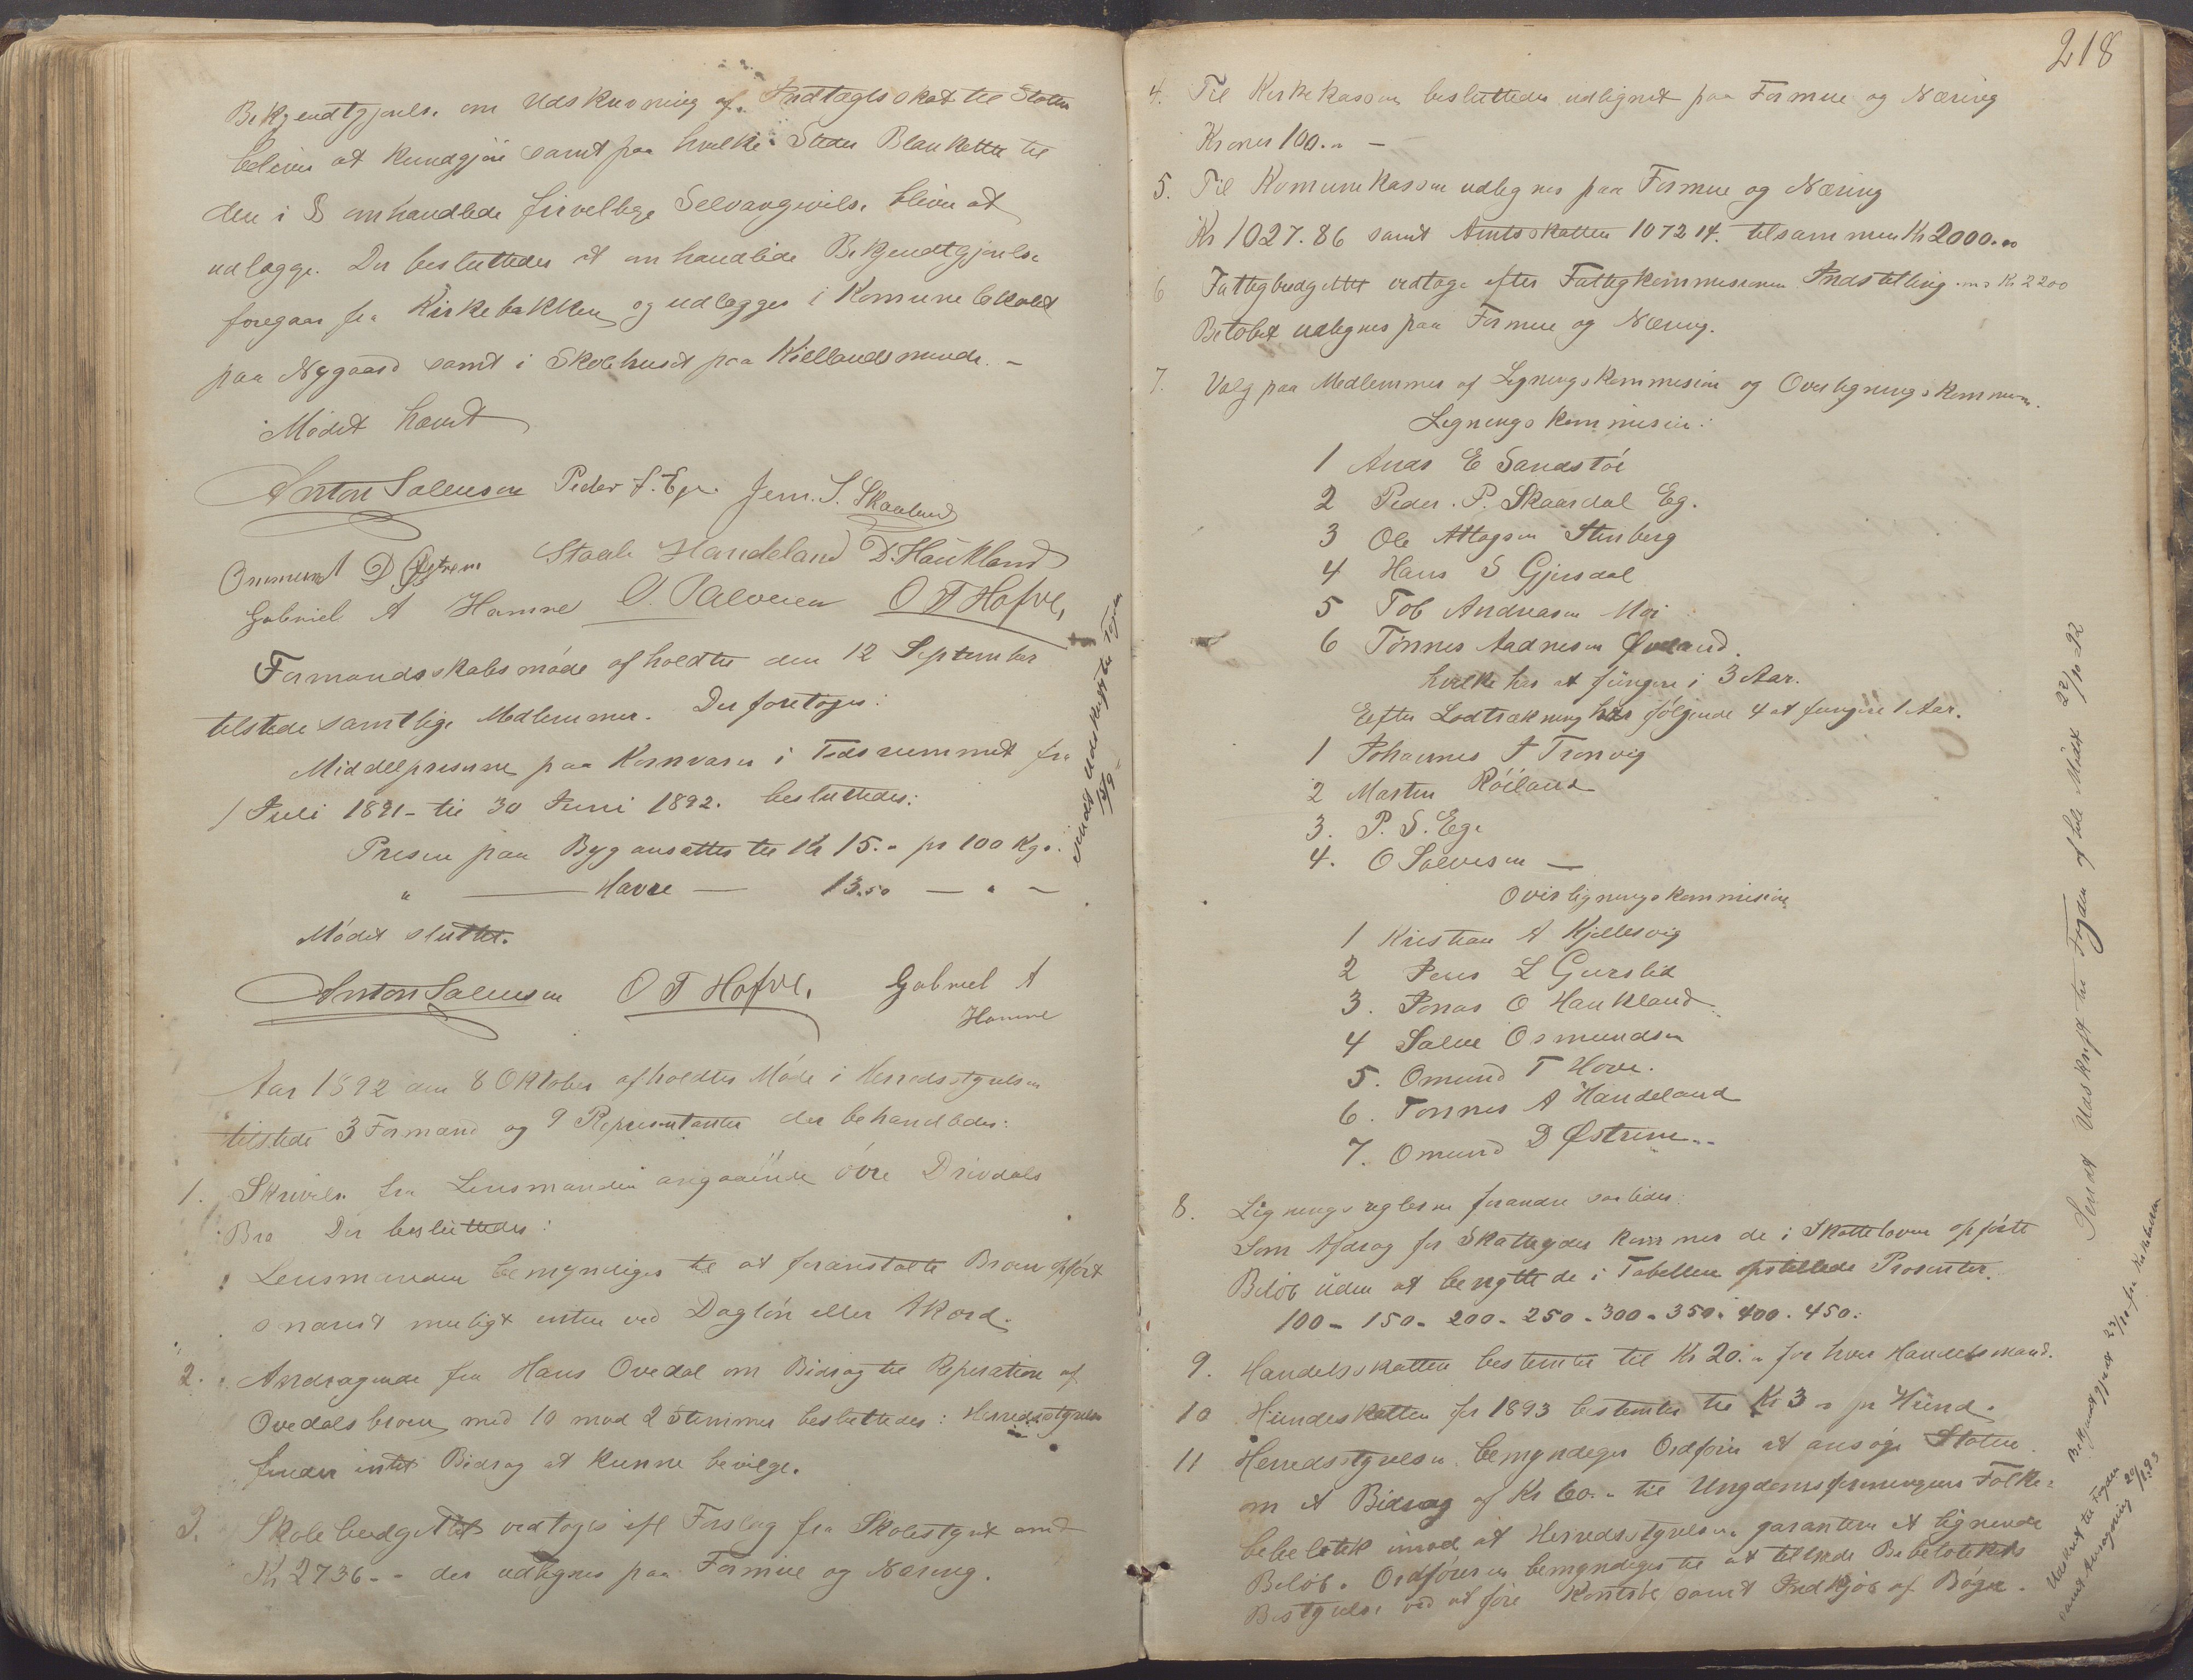 Bekjendtgjørelse om Udskrivning af Indtægtsskat til Staten
bliver at kundgjøre samt paa hvilke Steder Blanketter til
den i § omhandlede frivellige Selvangivelse bliver at
udlægge. Der besluttedes at omhandlede Bekjendtgjørelse
foregaar fra Kirkebakken og udlægges i Komunelokalet
paa Nygaard samt i Skolehuset paa Kiellandsminde. –
Mødet hævet
Anton Salvesen Peder S. Ege Jern. S. Skaaland
Ommund D Østrem Staale Handeland D. Haukland
Gabriel A Hamre O. Salvesen O T Hofve,
Formandsskabsmøde afholdtes den 12 September
tilstede samtlige Medlemmer. Der foretoges:
Middelpriserne paa Kornvarer i Tidsrummet fra
1 Juli 1891 – til 30 Juni 1892. besluttedes:
Prisen paa Byg ansættes til Kr 15. " pr 100 Kg.
" — Havre — 13.50 — " –
Mødet sluttet.
sendt Udskrift til Fogden
Anton Salvesen O T Hofve, Gabriel A
Hamre
Aar 1892 den 8 Oktober afholdtes Møde i Herredsstyrelsen
tilstede 3 Formænd og 9 Representanter der behandledes:
1. Skrivelse fra Lensmanden angaaende øvre Drivdals
Bro Der besluttedes:
Lensmanden bemyndiges til at foranstalte Broen opført
snarest muligt enten ved Dagløn eller Akord.
2. Andragende fra Hans Ovedal om Bidrag til Reperation af
Ovedalsbroen, med 10 mod 2 Stemmer besluttedes: Herredsstyrelsen
finder intet Bidrag at kunne bevilge.
3. Skolebudgettet vedtoges efl Forslag fra Skolestyret med
Kr 2736 – " der udlignes paa Formue og Næring.
218
4. Til Kirkekassen besluttedes udlignet paa Formue og Næring
Kroner 100. " –
5. Til Komunekassen udlignes paa Formue og Næring
Kr 1027.86 samt Amtsskatten 1072 14. tilsammen Kr 2000.00
6 Fattigbudgettet vedtoges efter Fattigkommissionens Indstilling. Kr 2200
Beløbet udlignes paa Formue og Næring.
7. Valg paa Medlemmer af Ligningskommision og Overligningskommision.
Ligningskommision:
1 Ands E Sandstøl
2 Peder. P. Skaardal Eg.
3 Ole Atlagsen Stenberg
4 Hans S Gjersdal
5 Tob Andreasen Moi
6 Tønnes Aadnesen Øveland.
hvilke har at fungere i 3 Aar.
Eefter Lodtrækning har følgende 4 at fungere 1 Aar.
1 Johannes J Tronvig
2 Martin Røiland
3. P. S. Ege
4. O Salvesen —
Overligningskommision
1 Kristian A Kjellesvig
2 Jens L Gurslid
3. Jonas O Haukland
4 Salve Osmundsen
5. Omund T Hove.
6. Tønnes A Handeland
7. Omund D Østrem..
8. Ligningsreglerne forandre saaledes:
Som Afdrag for Skatteyder kommer de i Skatteloven opførte
Beløb uden at benytte de i Tabellen opstillede Prosenter.
100 – 150. 200. 250. 300. 350. 400. 450.
9. Handelsskatten bestemtes til Kr 20. " for hver Handelsmand.
10 Hundeskatten for 1893 bestemtes til Kr 3 " pr Hund.
11 Herredsstyrelsen bemyndiger Ordføren at ansøge Staten
om et Bidrag af Kr 60. " til Ungdomsforeningens Folke-
bebelotek imod at Herredsstyrelsen garanterer et lignende
Beløb. Ordføreren bemyndiges til at tiltræde Bebelotekets
Bestyrelse ved at føre Kontrol samt Indkjøb af Bøger.
Sendt Udskrift til Fogden af hele Mødet 22/10 92
Bekjendtgjort 23/10 fra Kirkebakken
Udskrift til Fogden
samt Ansøgning